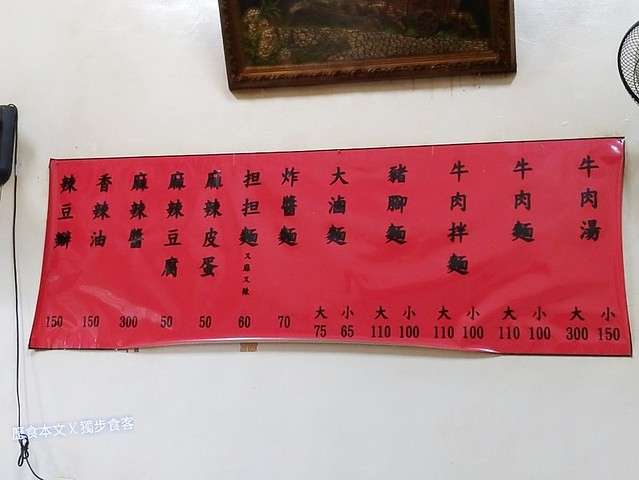 牛肉湯 大300 小150
牛肉麵 大110 小100
牛肉拌麵 大110 小100
豬腳麵 大110 小100
大滷麵 大75 小65
炸醬麵 70
担担麵 又麻又辣 60
麻辣皮蛋 50
麻辣豆腐 50
麻辣醬 300
香辣油 150
辣豆瓣 150
食本文X獨步食客